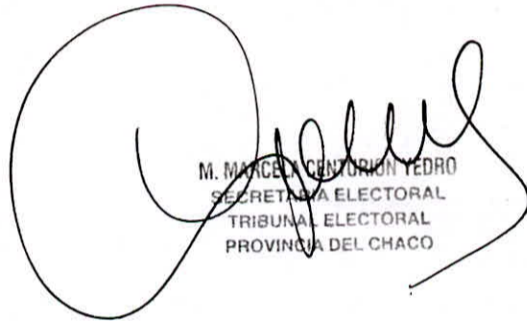 M. MARCELA CENTURION YEDRO
SECRETARIA ELECTORAL
TRIBUNAL ELECTORAL
PROVINCIA DEL CHACO